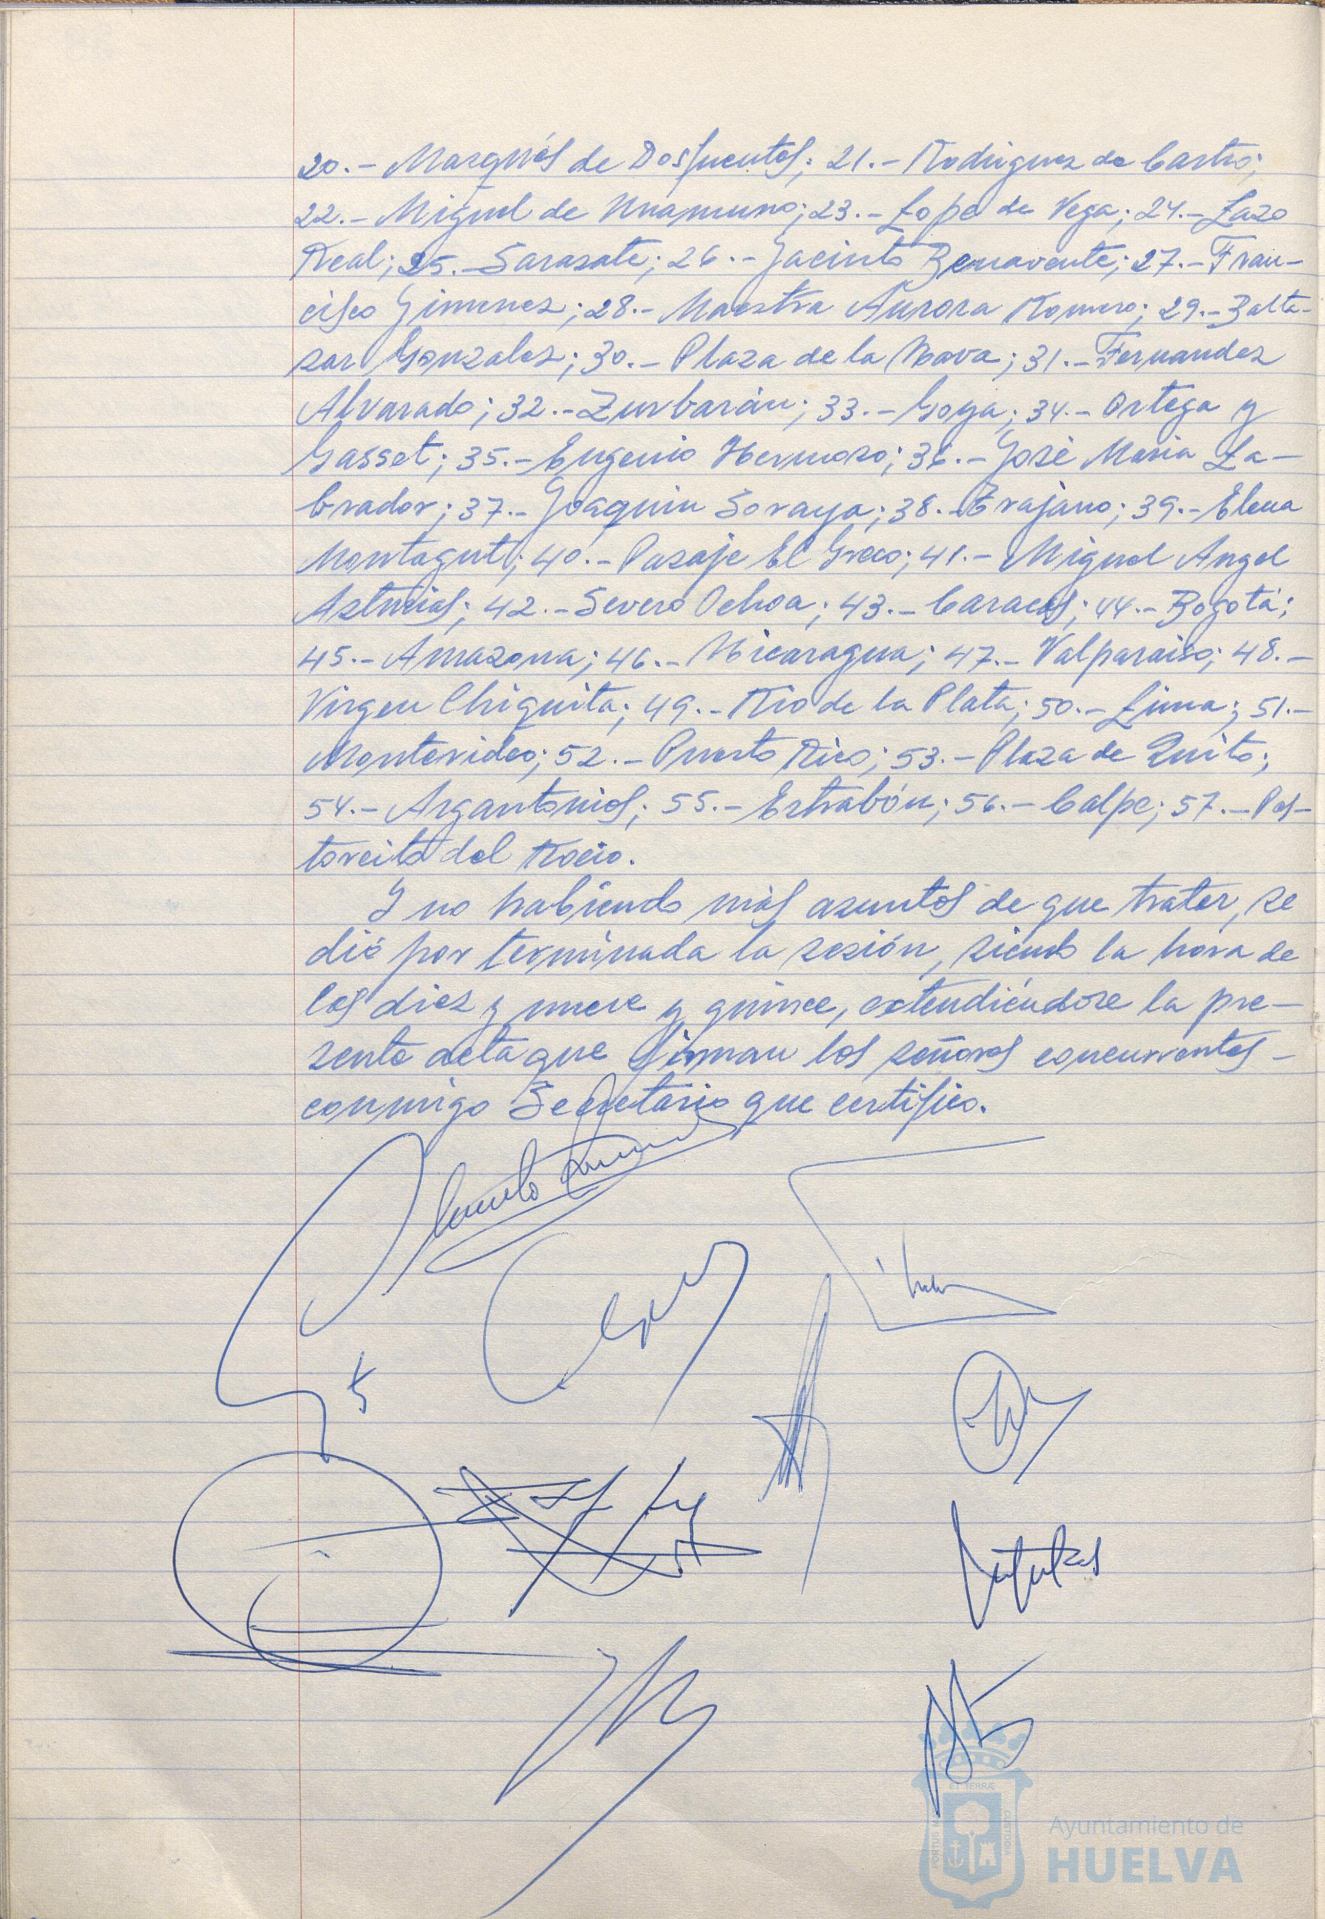 20.- Marqués de Dosfuentes; 21.- Rodriguez de Castro;
22.- Miguel de Unamuno; 23.- Lope de Vega; 24.- Lazo
Real; 25.- Sarasate; 26.- Jacinto Benavente; 27.- Fran-
cisco Gimenez; 28.- Maestra Aurora Romero; 29.- Balta-
sar Gonzalez; 30.- Plaza de la Nava; 31.- Fernandez
Alvarado; 32.- Zurbarán; 33.- Goya; 34.- Ortega y
Gasset; 35.- Eugenio Hermoso; 36.- José Maria La-
brador; 37.- Joaquin Soraya; 38.- Trajano; 39.- Elena
Montagut; 40.- Pasaje El Greco; 41.- Miguel Angel
Asturias; 42.- Severo Ochoa; 43.- Caracas; 44.- Bogotá;
45.- Amazona; 46.- Nicaragua; 47.- Valparaiso; 48.-
Virgen Chiquita; 49.- Rio de la Plata; 50.- Lima; 51.-
Montevideo; 52.- Puerto Rico; 53.- Plaza de Quito;
54.- Argantonios; 55.- Estrabón; 56.- Calpe; 57.- Pas-
torcito del Rocio.
Y no habiendo más asuntos de que tratar, se
dió por terminada la sesión, siendo la hora de
las diez y nueve y quince, extendiéndose la pre-
sente acta que firman los señores concurrentes -
conmigo Secretario que certifico.
ET TERRÆ
PORTUS MARIS
CUSTODIA
Ayuntamiento de
HUELVA